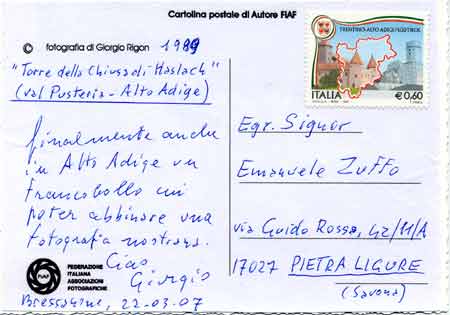 Cartolina postale di Autore FIAF
© fotografia di Giorgio Rigon 1989
"Torre della Chiusa di Haslach"
(val Pusteria - Alto Adige)
finalmente anche
in Alto Adige un
francobollo cui
poter abbinare una
fotografia nostrana.
Ciao
Giorgio
FIAF
FEDERAZIONE
ITALIANA
ASSOCIAZIONI
FOTOGRAFICHE
Bressanone, 22-03-07
TRENTINO-ALTO ADIGE/SÜDTIROL
ITALIA €0,60
Egr. Signor
Emanuele Zuffo
via Guido Rossa, 42/11/A
17027 PIETRA LIGURE
(Savona)